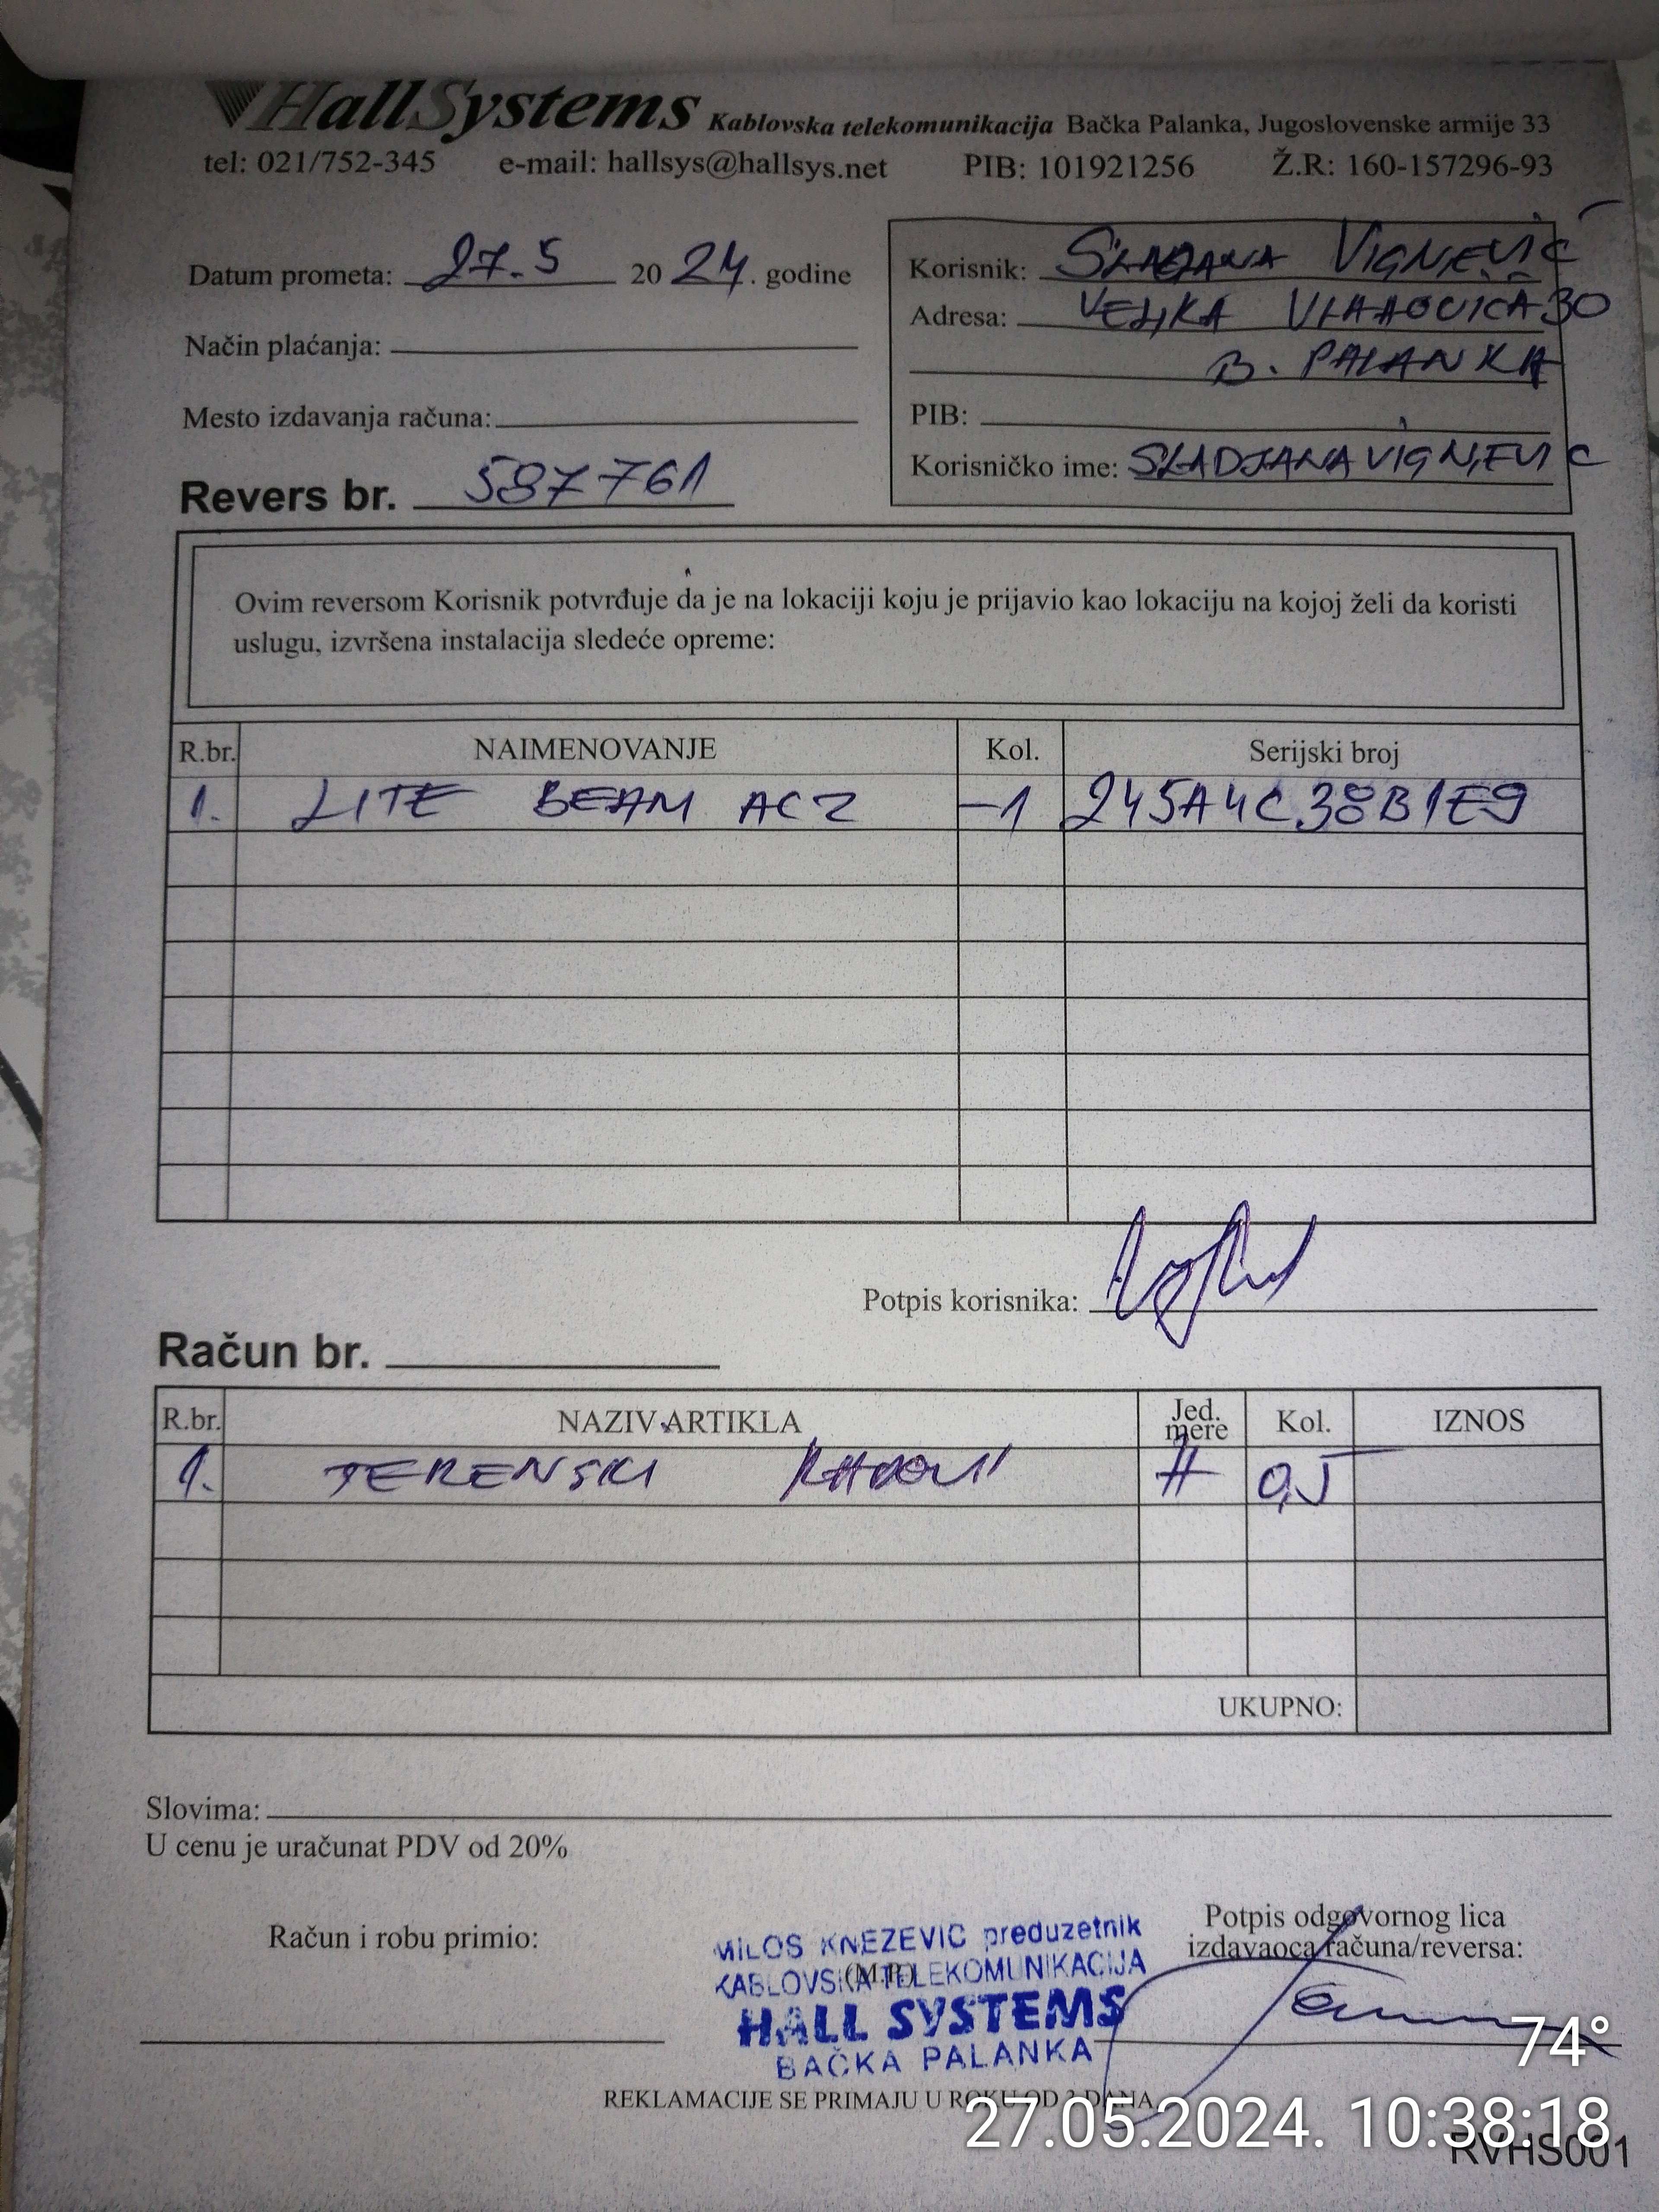 HallSystems Kablovska telekomunikacija Bačka Palanka, Jugoslovenske armije 33
tel: 021/752-345 e-mail: hallsys@hallsys.net PIB: 101921256 Ž.R: 160-157296-93
Datum prometa: 27.5 2024. godine
Način plaćanja:
Mesto izdavanja računa:
Revers br. 587761
Korisnik: SLAĐANA VIGNJEVIĆ
Adresa: VELJKA VLAHOVIĆA 30
B. PALANKA
PIB:
Korisničko ime: SLADJANAVIGNJEVIC
Ovim reversom Korisnik potvrđuje da je na lokaciji koju je prijavio kao lokaciju na kojoj želi da koristi
uslugu, izvršena instalacija sledeće opreme:
R.br. NAIMENOVANJE Kol. Serijski broj
1. LITE BEAM AC2 -1 245A4C38B1E9
Potpis korisnika:
Račun br.
R.br. NAZIV ARTIKLA Jed. mere Kol. IZNOS
1. TERENSKI RADOVI H 0,5
UKUPNO:
Slovima:
U cenu je uračunat PDV od 20%
Račun i robu primio:
(M.P.)
MILOS KNEZEVIC preduzetnik
KABLOVSKA TELEKOMUNIKACIJA
HALL SYSTEMS
BAČKA PALANKA
Potpis odgovornog lica
izdavaoca računa/reversa:
REKLAMACIJE SE PRIMAJU U ROKU OD 3 DANA
74°
27.05.2024. 10:38:18
RVHS001